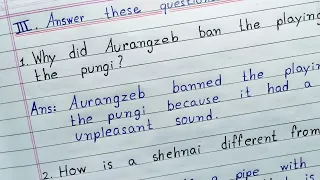 III. Answer these question
1. Why did Aurangzeb ban the playing
the pungi?
Ans: Aurangzeb banned the playin
the pungi because it had a
unpleasant sound.
2. How is a shehnai different from
a pipe with
is